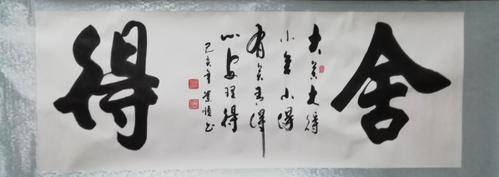 舍得
大舍大得
小舍小得
有舍有得
心安理得
己亥年